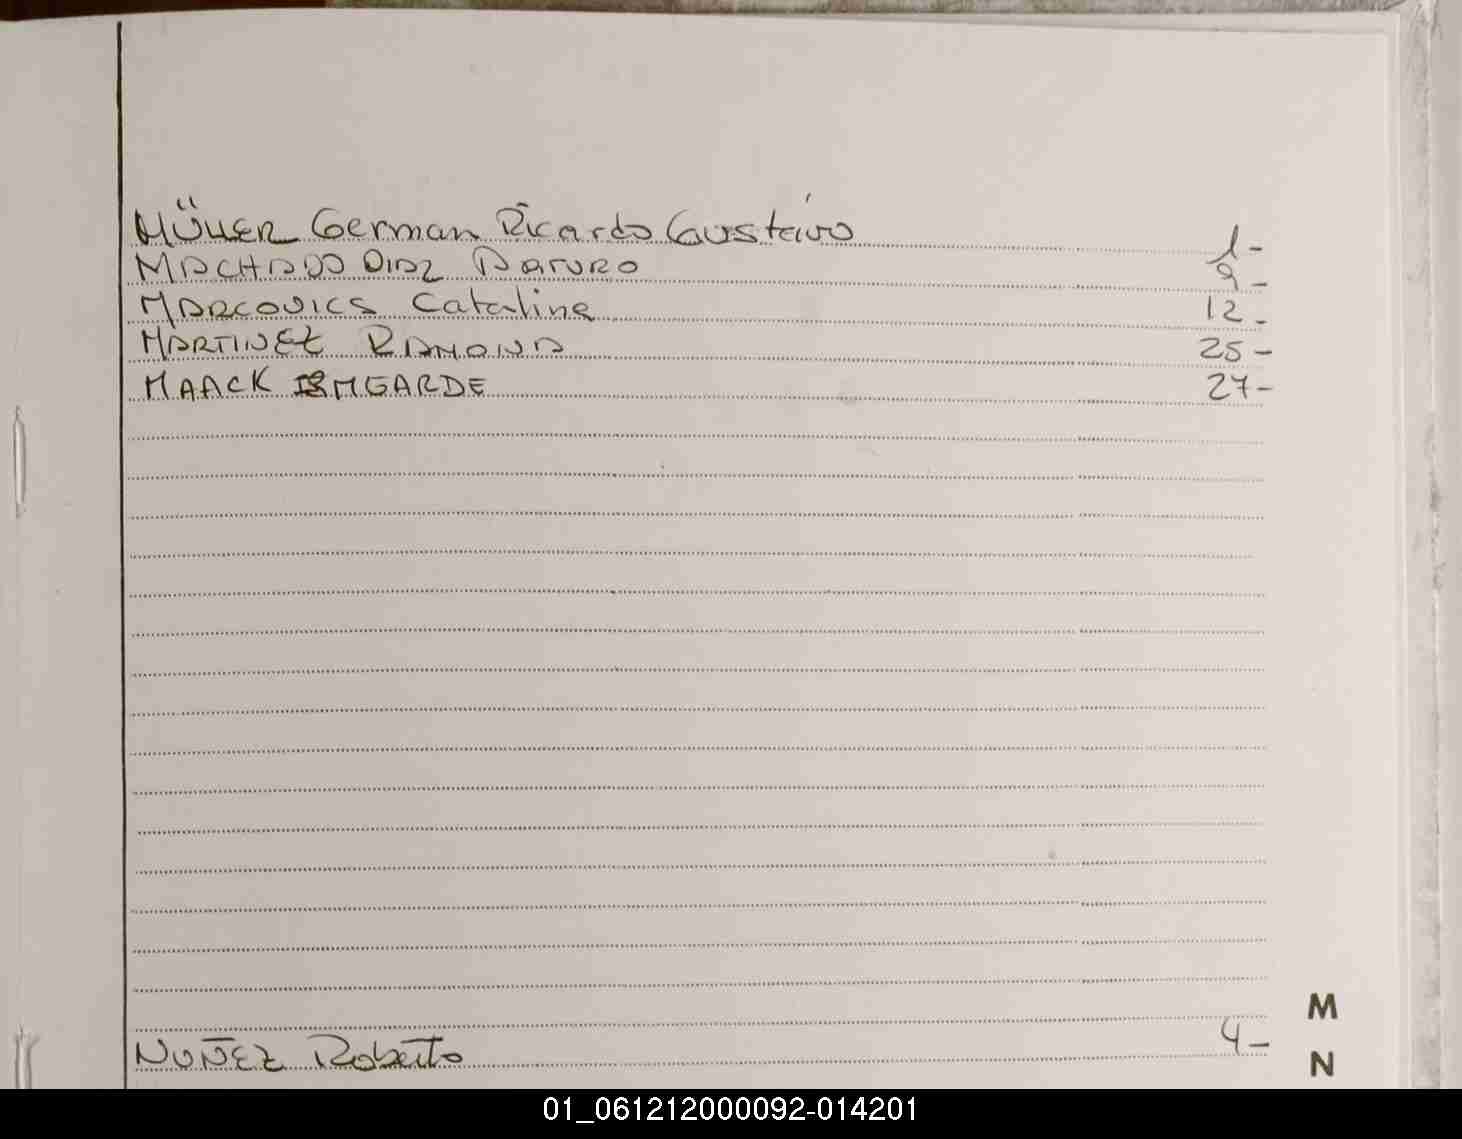 MÜLLER German Ricardo Gustavo 1-
MACHADO DIAZ ARTURO 9-
MARCOVICS Catalina 12-
MARTINEZ RAMONA 25-
MAACK ISMGARDE 27-
M
NUÑEZ Roberto 4-
N
01_061212000092-014201